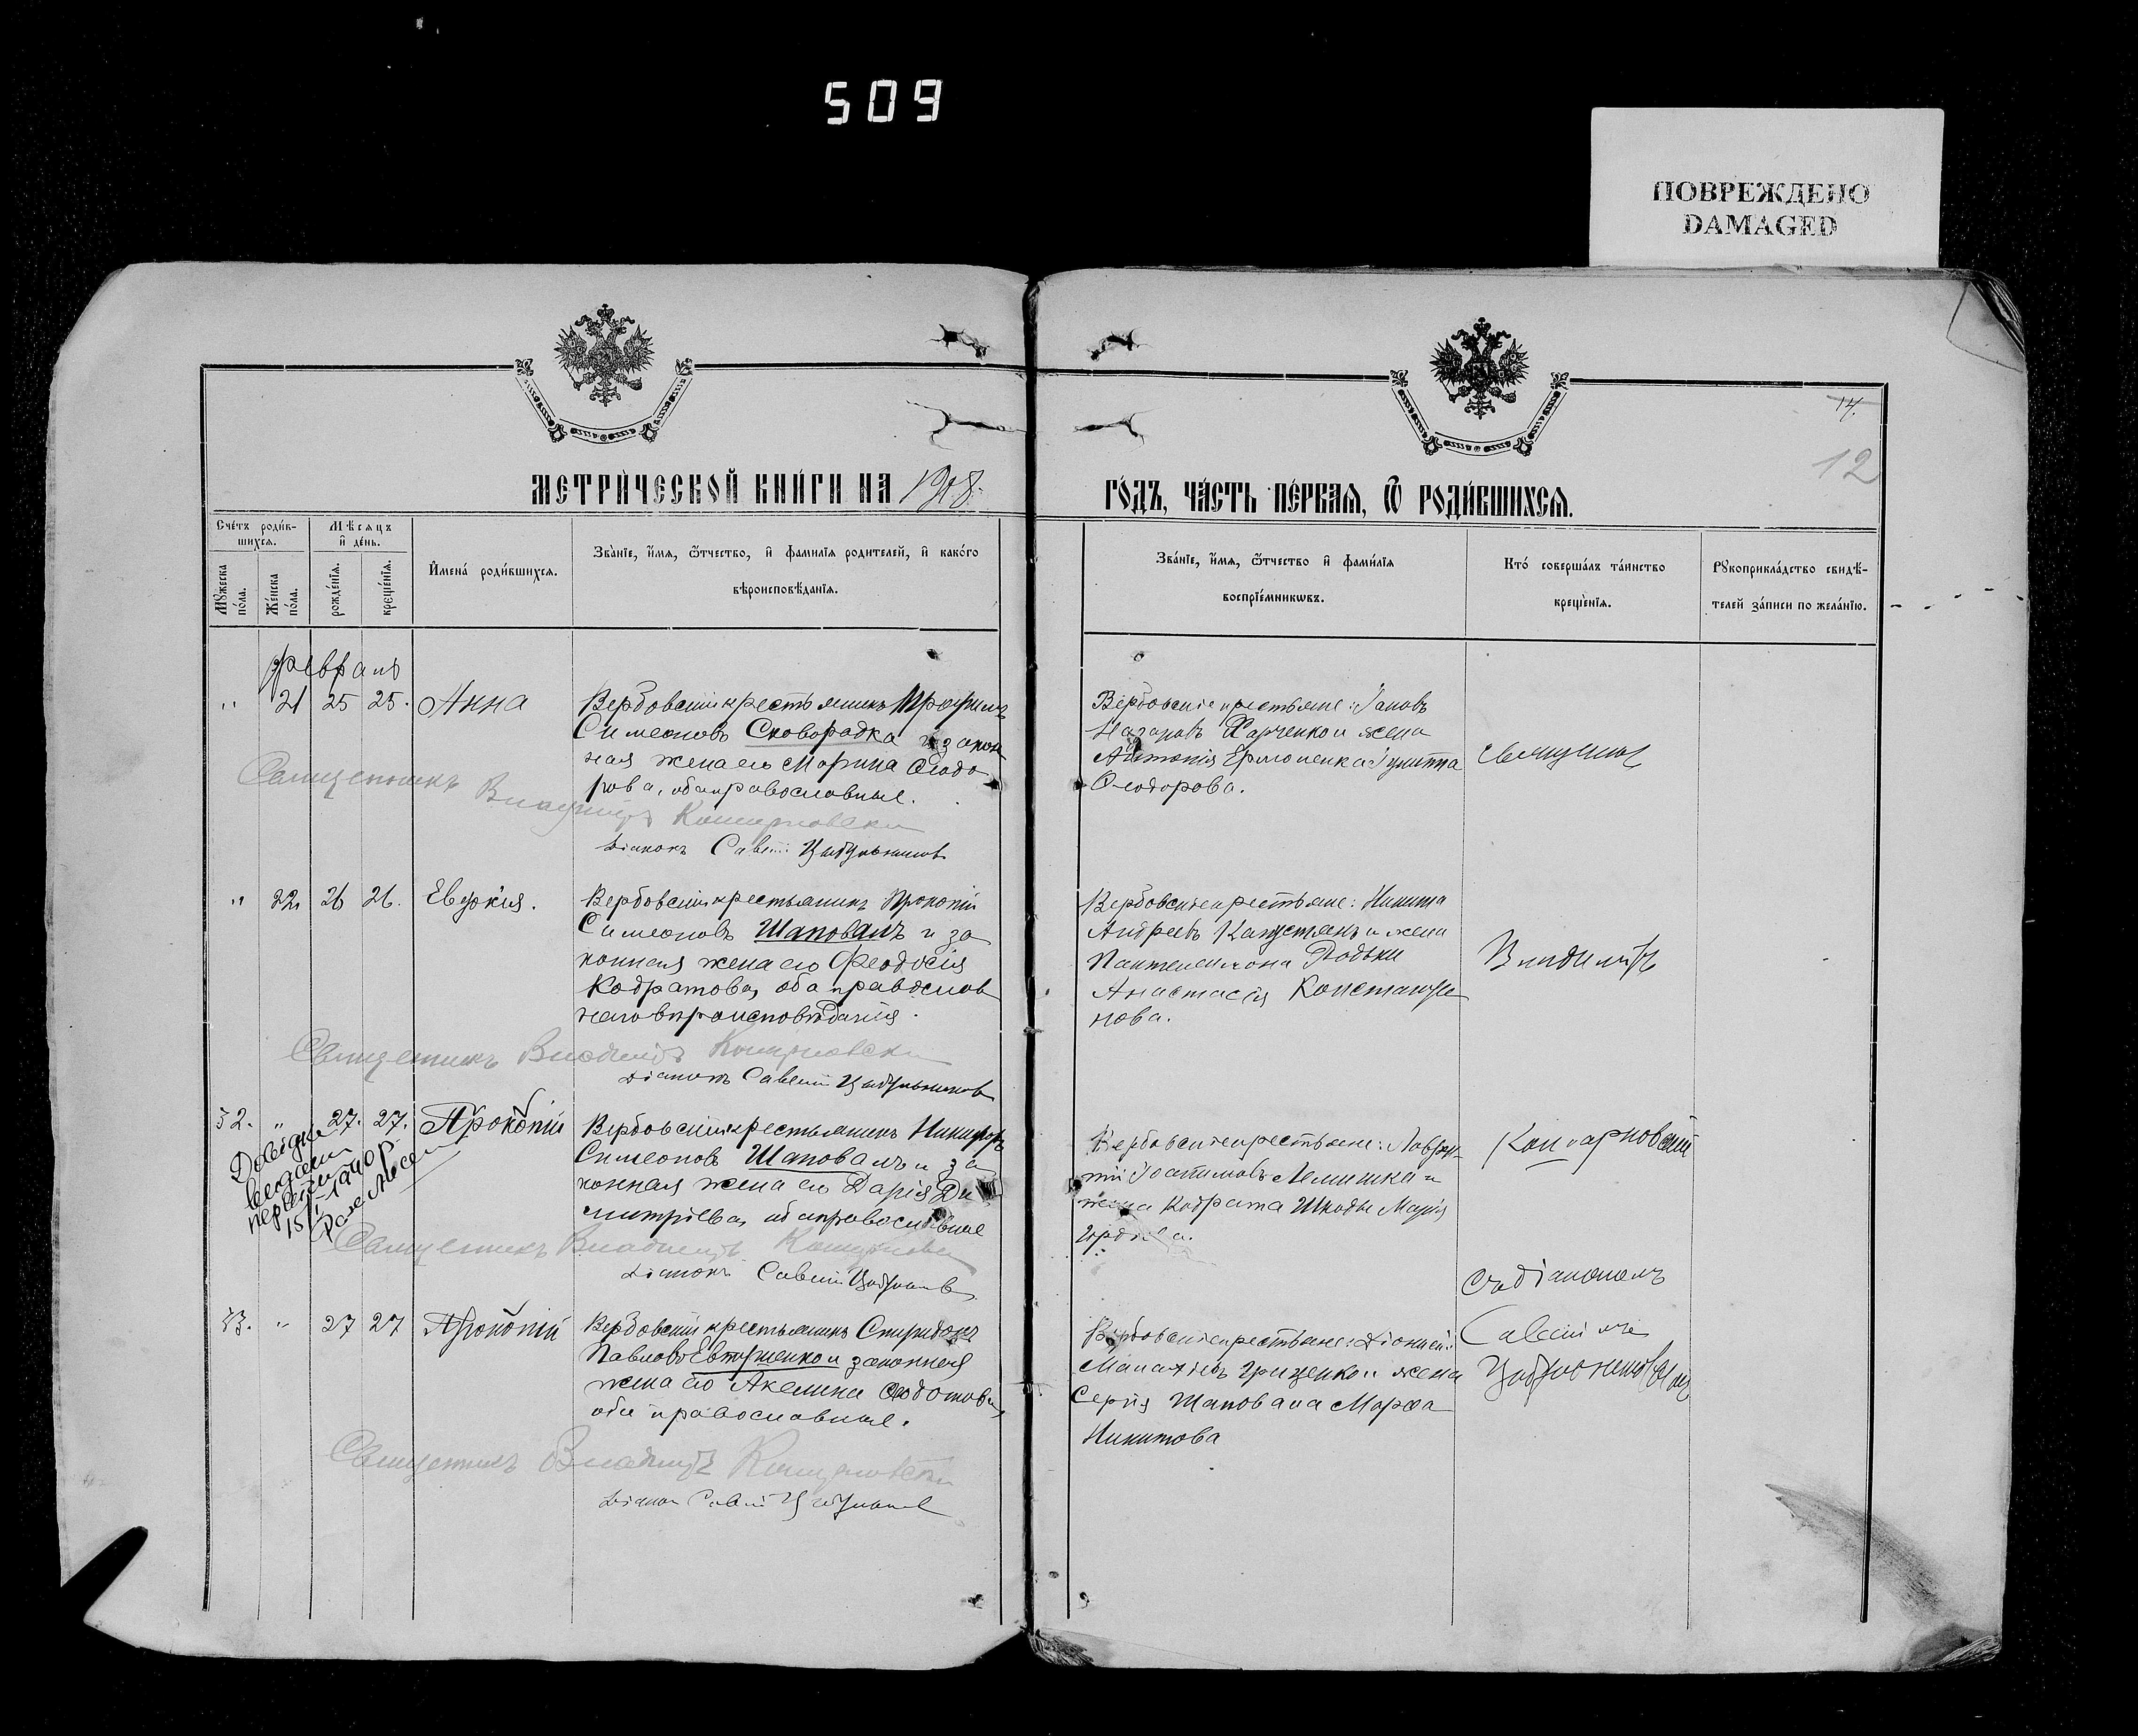 509
ПОВРЕЖДЕНО
DAMAGED
14.
12
МЕТРИ́ЧЕСКОЙ КНИ́ГИ НА 1908.
ГО́ДЪ, ЧА́СТЬ ПЕ́РВАѦ, Ѿ РОДИ́ВШИХСѦ.
Сче́тъ роди́в-
шихсѧ.
Мꙋ́жеска по́ла.
Же́нска по́ла.
Мѣ́сяцъ
и҆ де́нь.
рожде́нїѧ.
креще́нїѧ.
И҆мена̀ роди́вшихсѧ.
Зва́нїе, и҆́мѧ, ѻ҆́тчество, и҆ фамилїѧ родителей, и҆ како́го
вѣроисповѣ́данїѧ.
Зва́нїе, и҆́мѧ, ѻ҆́тчество и҆ фами́лїѧ
воспрїе́мникѡвъ.
Кто́ соверша́лъ та́инство
креще́нїѧ.
Рꙋкоприкла́дство свидѣ́-
телей за́писи по жела́нїю.
Февраль
" 21 25 25. Анна
Вербовскій крестьянинъ Трофимъ
Симеоновъ Сковородка и закон
ная жена его Марина Ѳеодо
рова, оба православные.
Священникъ Владиміръ
Діаконъ Савелій
Вербовскіе крестьяне: Іаковъ
Назаровъ Харченко и жена
Антонія Ермоленка Іулитта
Ѳеодорова.
Священник
" 22. 26 26. Евдокія.
Вербовскій крестьянинъ Прокопій
Симеоновъ Шаповалъ и за
конная жена его Феодосія
Кодратова, оба православ
наго вѣроисповѣданія.
Священникъ Владиміръ
Діаконъ Савелій
Вербовскіе крестьяне: Никита
Андреевъ Капустянъ и жена
Пантелеимона Родьки
Анастасія Константи
нова.
Владиміръ
32. " 27. 27. Прокопій
15/I 1940 р.
Вербовскій крестьянинъ Никифоръ
Симеоновъ Шаповалъ и за
конная жена его Дарія Ди
митріева, оба православные
Священникъ Владиміръ
Діаконъ Савелій
Вербовскіе крестьяне: Лаврен
тій Іоакимовъ Лемишка и
жена Кодрата Шкоды Марія
33. " 27 27 Прокопій
Вербовскій крестьянинъ Спиридонъ
Павловъ Евтушенко и законная
жена его Акелина Ѳеодотова,
оба православные.
Священникъ Владиміръ
Діаконъ Савелій
Вербовскіе крестьяне: Діонисій
Грищенко и жена
Сергія Шаповала Марѳа
Никитова
съ діакономъ
Савеліемъ